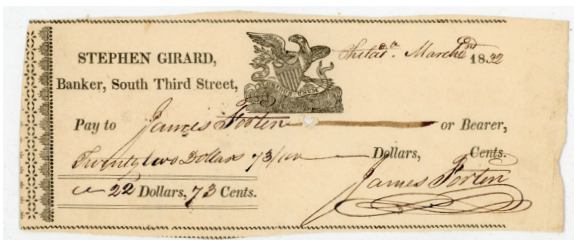 STEPHEN GIRARD,
Banker, South Third Street,
Philada. March 18.32
Pay to James Forten or Bearer,
Twenty two Dollars 73/100 Dollars, Cents.
22 Dollars, 73 Cents.
James Forten